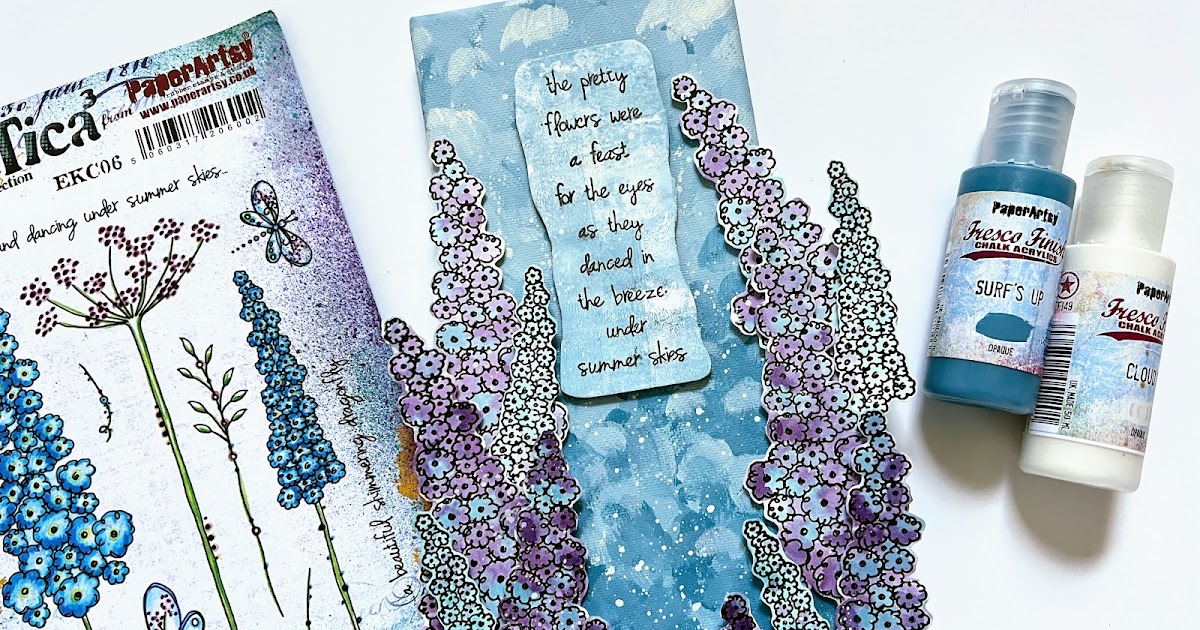 30 June
fica3
from
PaperArtsy
rubber stamps
www.paperartsy.co.uk
EKC06
5 060317 206002
and dancing under summer skies...
a beautiful shimmering dragonfly
the pretty
flowers were
a feast
for the eyes
as they
danced in
the breeze
under
summer skies
PaperArtsy
Fresco Finish
CHALK ACRYLICS
SURF'S UP
OPAQUE
PaperArtsy
FF149
Fresco Finish
CHALK ACRYLICS
CLOUD
UK MADE 50 ML